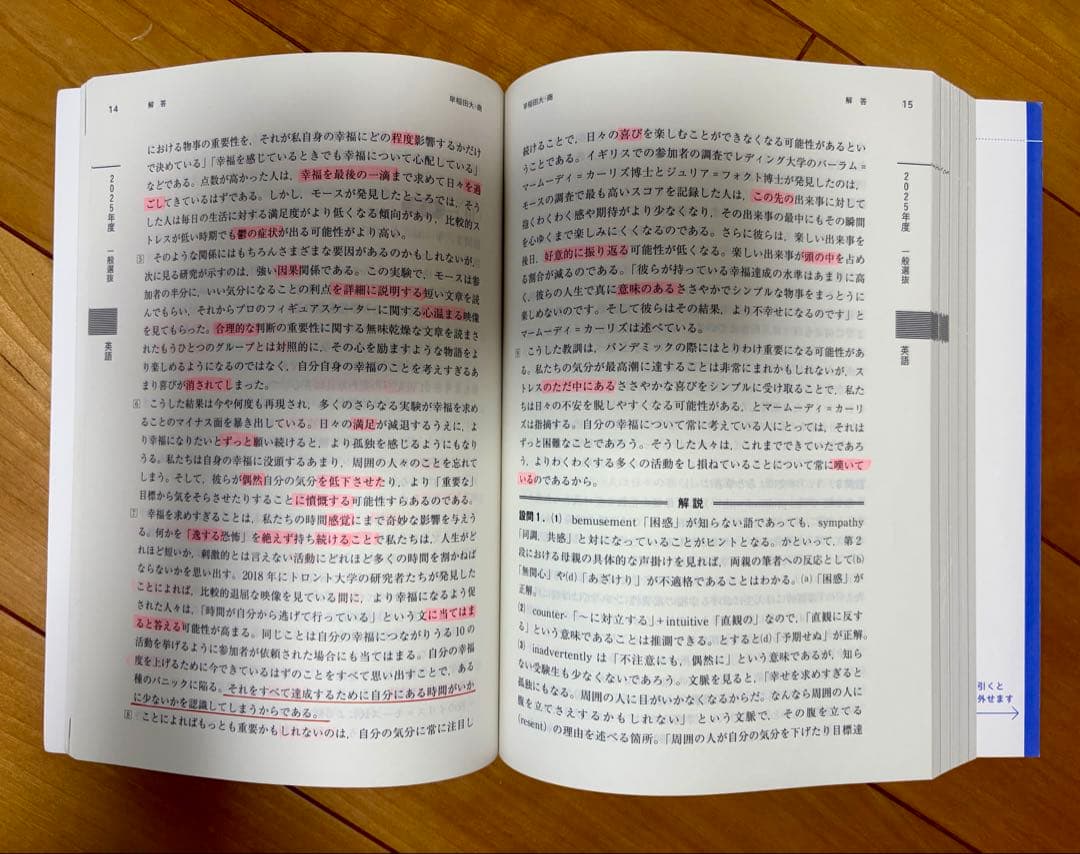 14 解答 早稲田大-商
2025年度 一般選抜
英語
における物事の重要性を，それが私自身の幸福にどの程度影響するかだけ
で決めている」「幸福を感じているときでも幸福について心配している」
などである。点数が高かった人は，幸福を最後の一滴まで求めて日々を過
ごしてきているはずである。しかし，モースが発見したところでは，そう
した人は毎日の生活に対する満足度がより低くなる傾向があり，比較的ス
トレスが低い時期でも鬱の症状が出る可能性がより高い。
5 そのような関係にはもちろんさまざまな要因があるのかもしれないが，
次に見る研究が示すのは，強い因果関係である。この実験で，モースは参
加者の半分に，いい気分になることの利点を詳細に説明する短い文章を読
んでもらい，それからプロのフィギュアスケーターに関する心温まる映像
を見てもらった。合理的な判断の重要性に関する無味乾燥な文章を読まさ
れたもうひとつのグループとは対照的に，その心を励ますような物語をよ
り楽しめるようになるのではなく，自分自身の幸福のことを考えすぎるあ
まり喜びが消されてしまった。
6 こうした結果は今や何度も再現され，多くのさらなる実験が幸福を求め
ることのマイナス面を暴き出している。日々の満足が減退するうえに，よ
り幸福になりたいとずっと願い続けると，より孤独を感じるようにもなり
うる。私たちは自身の幸福に没頭するあまり，周囲の人々のことを忘れて
しまう。そして，彼らが偶然自分の気分を低下させたり，より「重要な」
目標から気をそらさせたりすることに憤慨する可能性すらあるのである。
7 幸福を求めすぎることは，私たちの時間感覚にまで奇妙な影響を与えう
る。何かを「逸する恐怖」を絶えず持ち続けることで私たちは，人生がど
れほど短いか，刺激的とは言えない活動にどれほど多くの時間を割かねば
ならないかを思い出す。2018年にトロント大学の研究者たちが発見した
ことによれば，比較的退屈な映像を見ている間に，より幸福になるよう促
された人々は，「時間が自分から逃げて行っている」という文に当てはま
ると答える可能性が高まる。同じことは自分の幸福につながりうる10の
活動を挙げるように参加者が依頼された場合にも当てはまる。自分の幸福
度を上げるために今できているはずのことをすべて思い出すことで，ある
種のパニックに陥る。それをすべて達成するために自分にある時間がいか
に少ないかを認識してしまうからである。
8 ことによればもっとも重要かもしれないのは，自分の気分に常に注目し
早稲田大-商 解答 15
2025年度 一般選抜
英語
続けることで，日々の喜びを楽しむことができなくなる可能性があるとい
うことである。イギリスでの参加者の調査でレディング大学のバーラム＝
マームーディ＝カーリズ博士とジュリア＝フォクト博士が発見したのは，
モースの調査で最も高いスコアを記録した人は，この先の出来事に対して
抱くわくわく感や期待がより少なくなり，その出来事の最中にもその瞬間
を心ゆくまで楽しみにくくなるのである。さらに彼らは，楽しい出来事を
後日，好意的に振り返る可能性が低くなる。楽しい出来事が頭の中を占め
る割合が減るのである。「彼らが持っている幸福達成の水準はあまりに高
く，彼らの人生で真に意味のあるささやかでシンプルな物事をまっとうに
楽しめないのです。そして彼らはその結果，より不幸せになるのです」と
マームーディ＝カーリズは述べている。
9 こうした教訓は，パンデミックの際にはとりわけ重要になる可能性があ
る。私たちの気分が最高潮に達することは非常にまれかもしれないが，ス
トレスのただ中にあるささやかな喜びをシンプルに受け取ることで，私た
ちは日々の不安を脱しやすくなる可能性がある，とマームーディ＝カーリ
ズは指摘する。自分の幸福について常に考えている人にとっては，それは
ずっと困難なことであろう。そうした人々は，これまでできていたであろ
う，よりわくわくする多くの活動をし損ねていることについて常に嘆いて
いるのであるから。
解説
設問1．(1) bemusement「困惑」が知らない語であっても，sympathy
「同調，共感」と対になっていることがヒントとなる。かといって，第2
段における母親の具体的な声掛けを見れば，両親の筆者への反応として(b)
「無関心」や(d)「あざけり」が不適格であることはわかる。(a)「困惑」が
正解。
(2) counter-「～に対立する」＋intuitive「直観の」なので，「直観に反す
る」という意味であることは推測できる。とすると(d)「予期せぬ」が正解。
(3) inadvertentlyは「不注意にも，偶然に」という意味であるが，知ら
ない受験生も少なくないであろう。文脈を見ると，「幸せを求めすぎると
孤独にもなる。周囲の人に目がいかなくなるからだ。なんなら周囲の人に
腹を立てさえするかもしれない」という文脈で，その腹を立てる
(resent)の理由を述べる箇所。「周囲の人が自分の気分を下げたり目標達
引くと
外せます